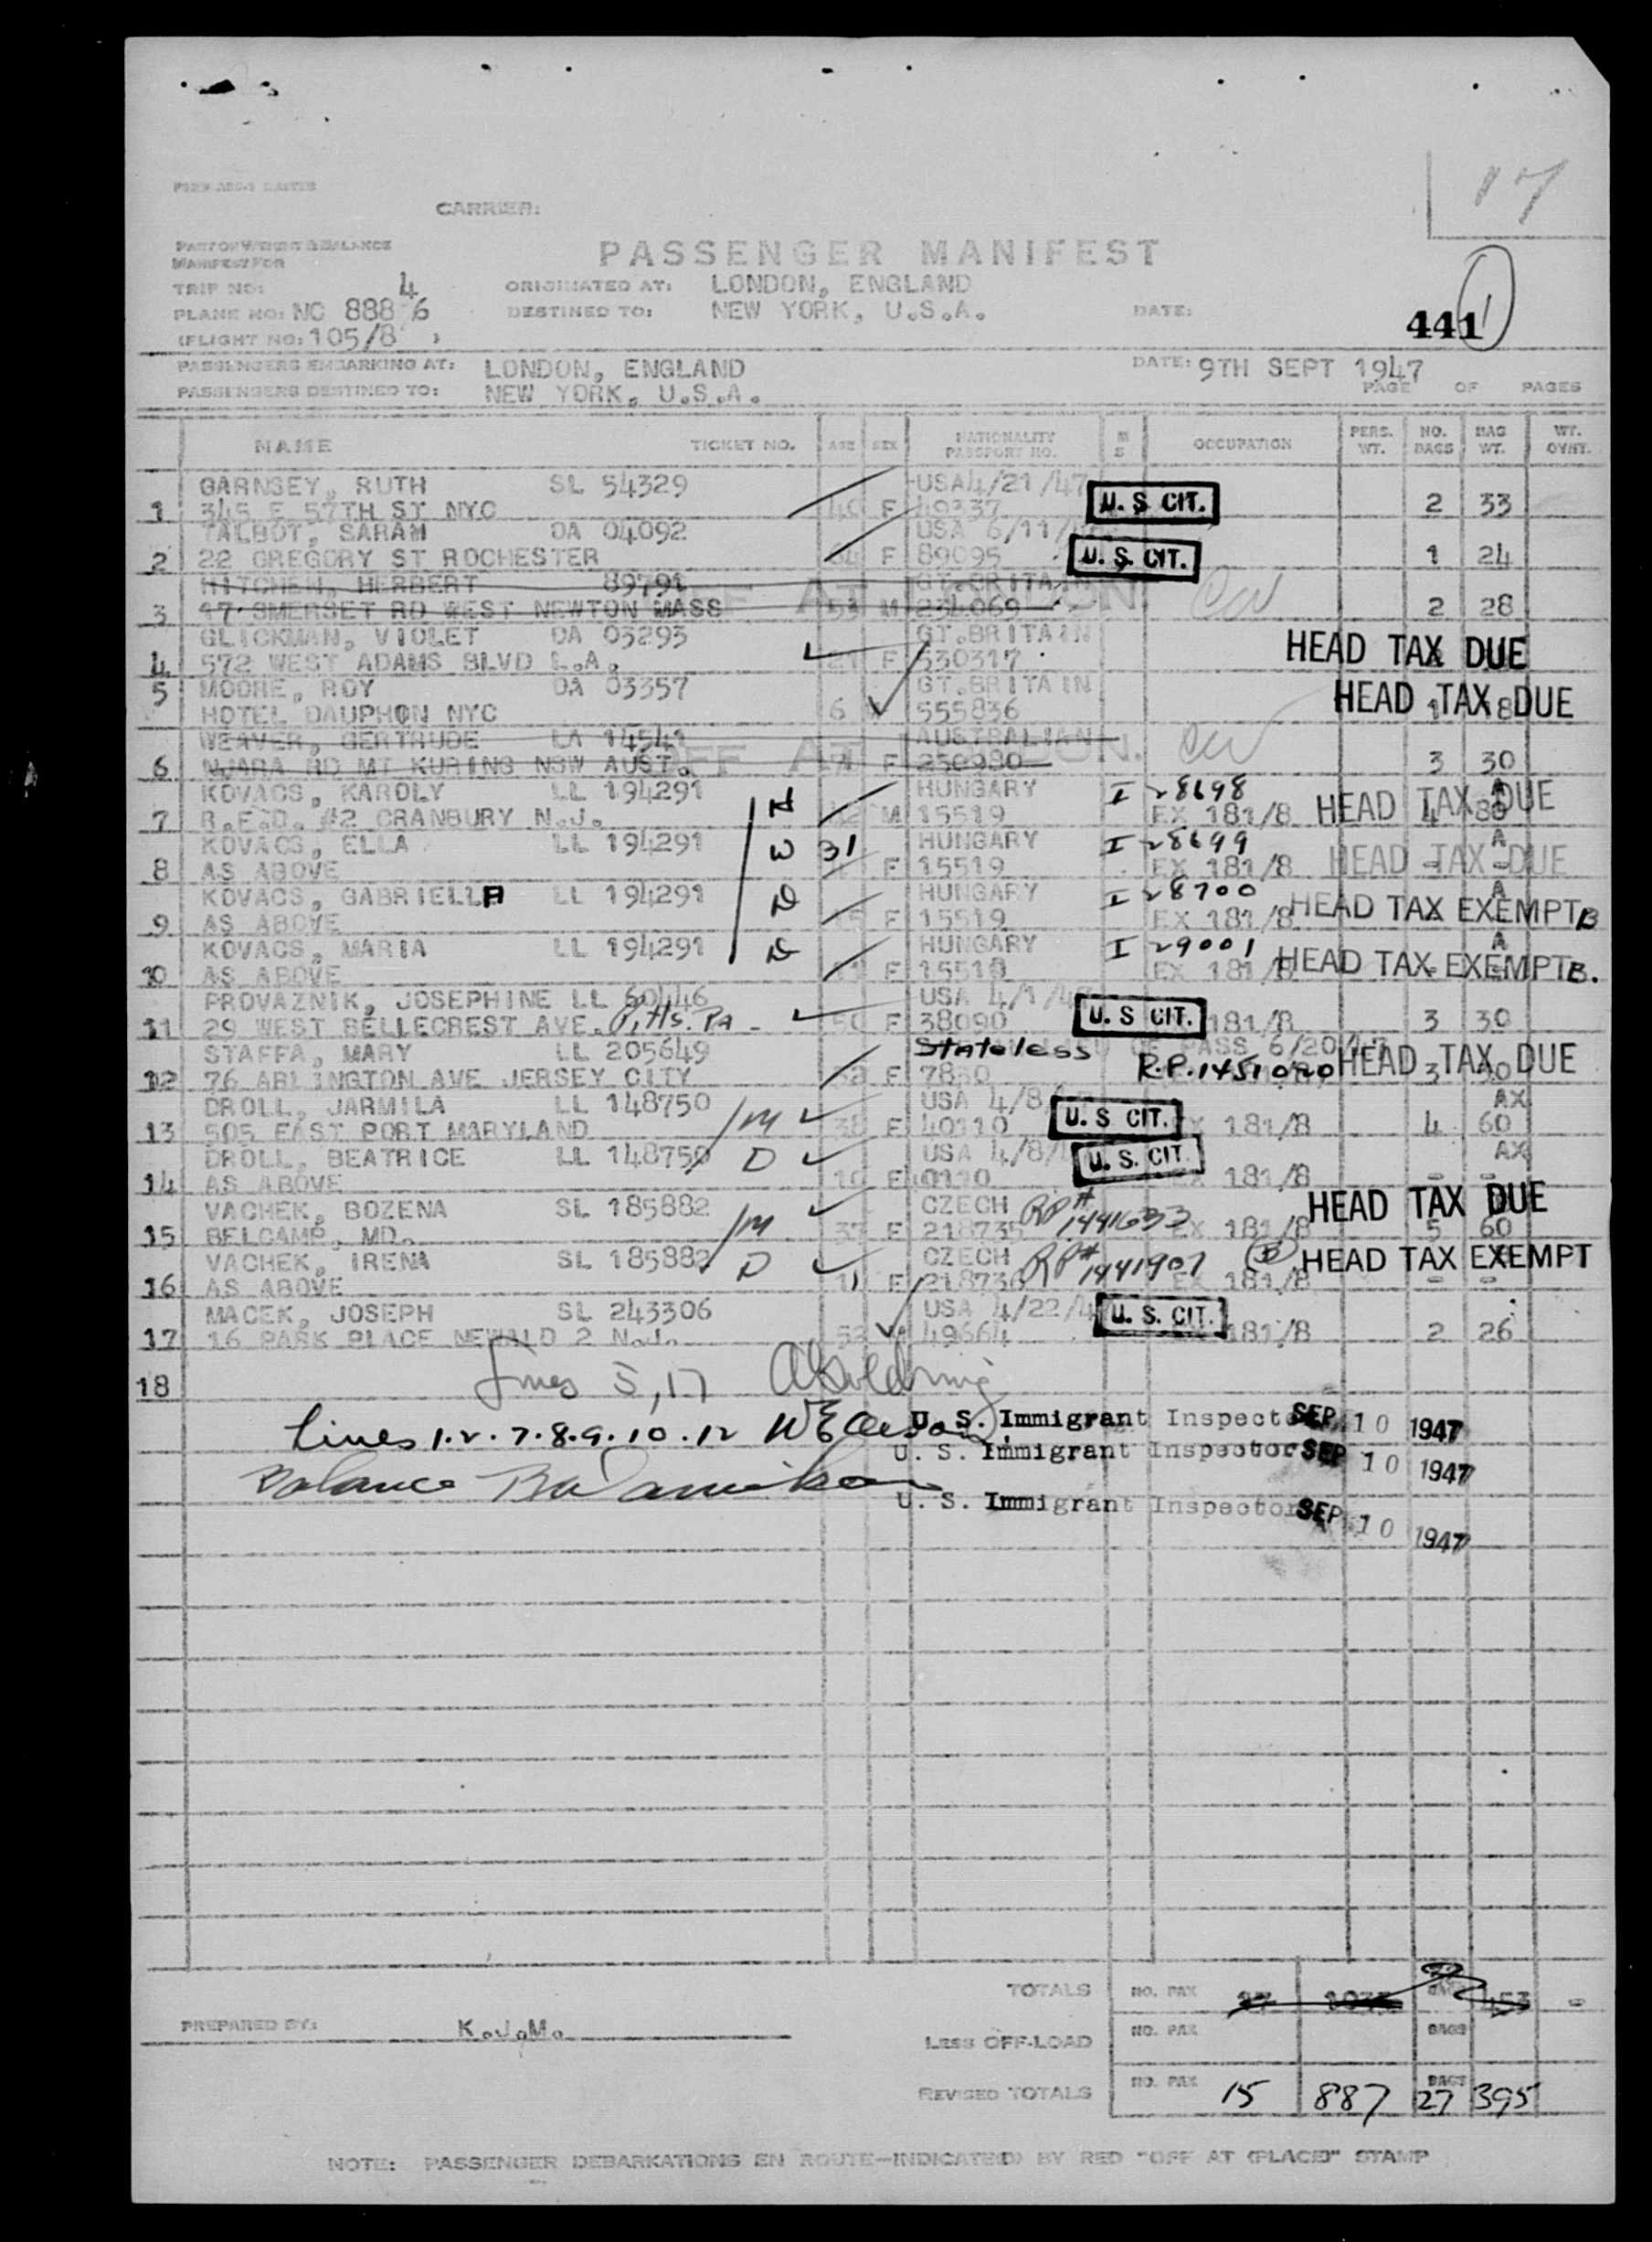 17
FORM
CARRIER:
PART OF WEIGHT & BALANCE
MANIFEST FOR
PASSENGER MANIFEST
TRIP NO: 4
ORIGINATED AT: LONDON, ENGLAND
PLANE NO: NC 888 6
DESTINED TO: NEW YORK, U.S.A.
DATE:
441 1
(FLIGHT NO: 105/8 )
PASSENGERS EMBARKING AT: LONDON, ENGLAND
DATE: 9TH SEPT 1947
PASSENGERS DESTINED TO: NEW YORK, U.S.A.
PAGE OF PAGES
NAME TICKET NO. AGE SEX NATIONALITY PASSPORT NO. M S OCCUPATION PERS. WT. NO. BAGS BAG WT. WT. OVHT.
GARNSEY, RUTH SL 54329 USA 4/21/47
1 345 E 57TH ST NYC F 49337 U. S CIT. 2 33
TALBOT, SARAH OA 04092 USA 6/11/
2 22 GREGORY ST ROCHESTER F 89095 U. S. CIT. 1 24
HITCHEN, HERBERT 89791 GT.BRITAIN
3 17 SMERSET RD WEST NEWTON MASS M 234069 2 28
GLICKMAN, VIOLET OA 03293 GT.BRITAIN
4 572 WEST ADAMS BLVD L.A. F 530317 HEAD TAX DUE
5 MOORE, ROY OA 03357 GT.BRITAIN
HOTEL DAUPHON NYC 6 555836 HEAD TAX DUE
WEAVER, GERTRUDE LA 14541 AUSTRALIAN
6 NJARA RD MT KURING NSW AUST. OFF AT F 250980 3 30
KOVACS, KAROLY LL 194291 H HUNGARY I 28698
7 R.F.D. #2 CRANBURY N.J. M 15519 EX 181/8 HEAD TAX DUE
KOVACS, ELLA LL 194291 W 31 HUNGARY I 28699 A
8 AS ABOVE F 15519 EX 181/8 HEAD TAX DUE
KOVACS, GABRIELLA LL 194291 D HUNGARY I 28700 A
9 AS ABOVE 15 F 15519 EX 181/8 HEAD TAX EXEMPT B
KOVACS, MARIA LL 194291 D HUNGARY I 29001 A
10 AS ABOVE F 15519 EX 181/8 HEAD TAX EXEMPT B.
PROVAZNIK, JOSEPHINE LL 60446 USA 4/1/
11 29 WEST BELLECREST AVE. Pitts. PA - 50 F 38090 U. S CIT. 181/8 3 30
STAFFA, MARY LL 205649 Stateless OF PASS 6/20/47
12 76 ARLINGTON AVE JERSEY CITY F 7850 R.P. 1451020 HEAD TAX DUE
DROLL, JARMILA LL 148750 M USA 4/8/ AX
13 505 EAST PORT MARYLAND 38 F 40110 U. S CIT. EX 181/8 4 60
DROLL, BEATRICE LL 148750 D USA 4/8/ AX
14 AS ABOVE 10 F 40110 U. S. CIT. 181/8 - -
VACHEK, BOZENA SL 185882 M CZECH RP# 1441633 HEAD TAX DUE
15 BELCAMP, MD. F 218735 EX 181/8 5 60
VACHEK, IRENA SL 185882 D CZECH RP# 1441907 B HEAD TAX EXEMPT
16 AS ABOVE 11 F 218736 EX 181/8 - -
MACEK, JOSEPH SL 243306 USA 4/22/4 U. S. CIT.
17 16 PARK PLACE NEWALD 2 N.J. 52 49664 181/8 2 26
18 Lines 5, 17
Lines 1. 2. 7. 8. 9. 10. 12 U. S. Immigrant Inspector SEP 10 1947
U. S. Immigrant Inspector SEP 10 1947
Balance
U. S. Immigrant Inspector SEP 10 1947
TOTALS NO. PAX 17 BAGS 453 -
PREPARED BY: K.J.M.
LESS OFF-LOAD NO. PAX BAGS
REVISED TOTALS NO. PAX 15 887 BAGS 27 395
NOTE: PASSENGER DEBARKATIONS EN ROUTE-INDICATED BY RED "OFF AT (PLACE)" STAMP